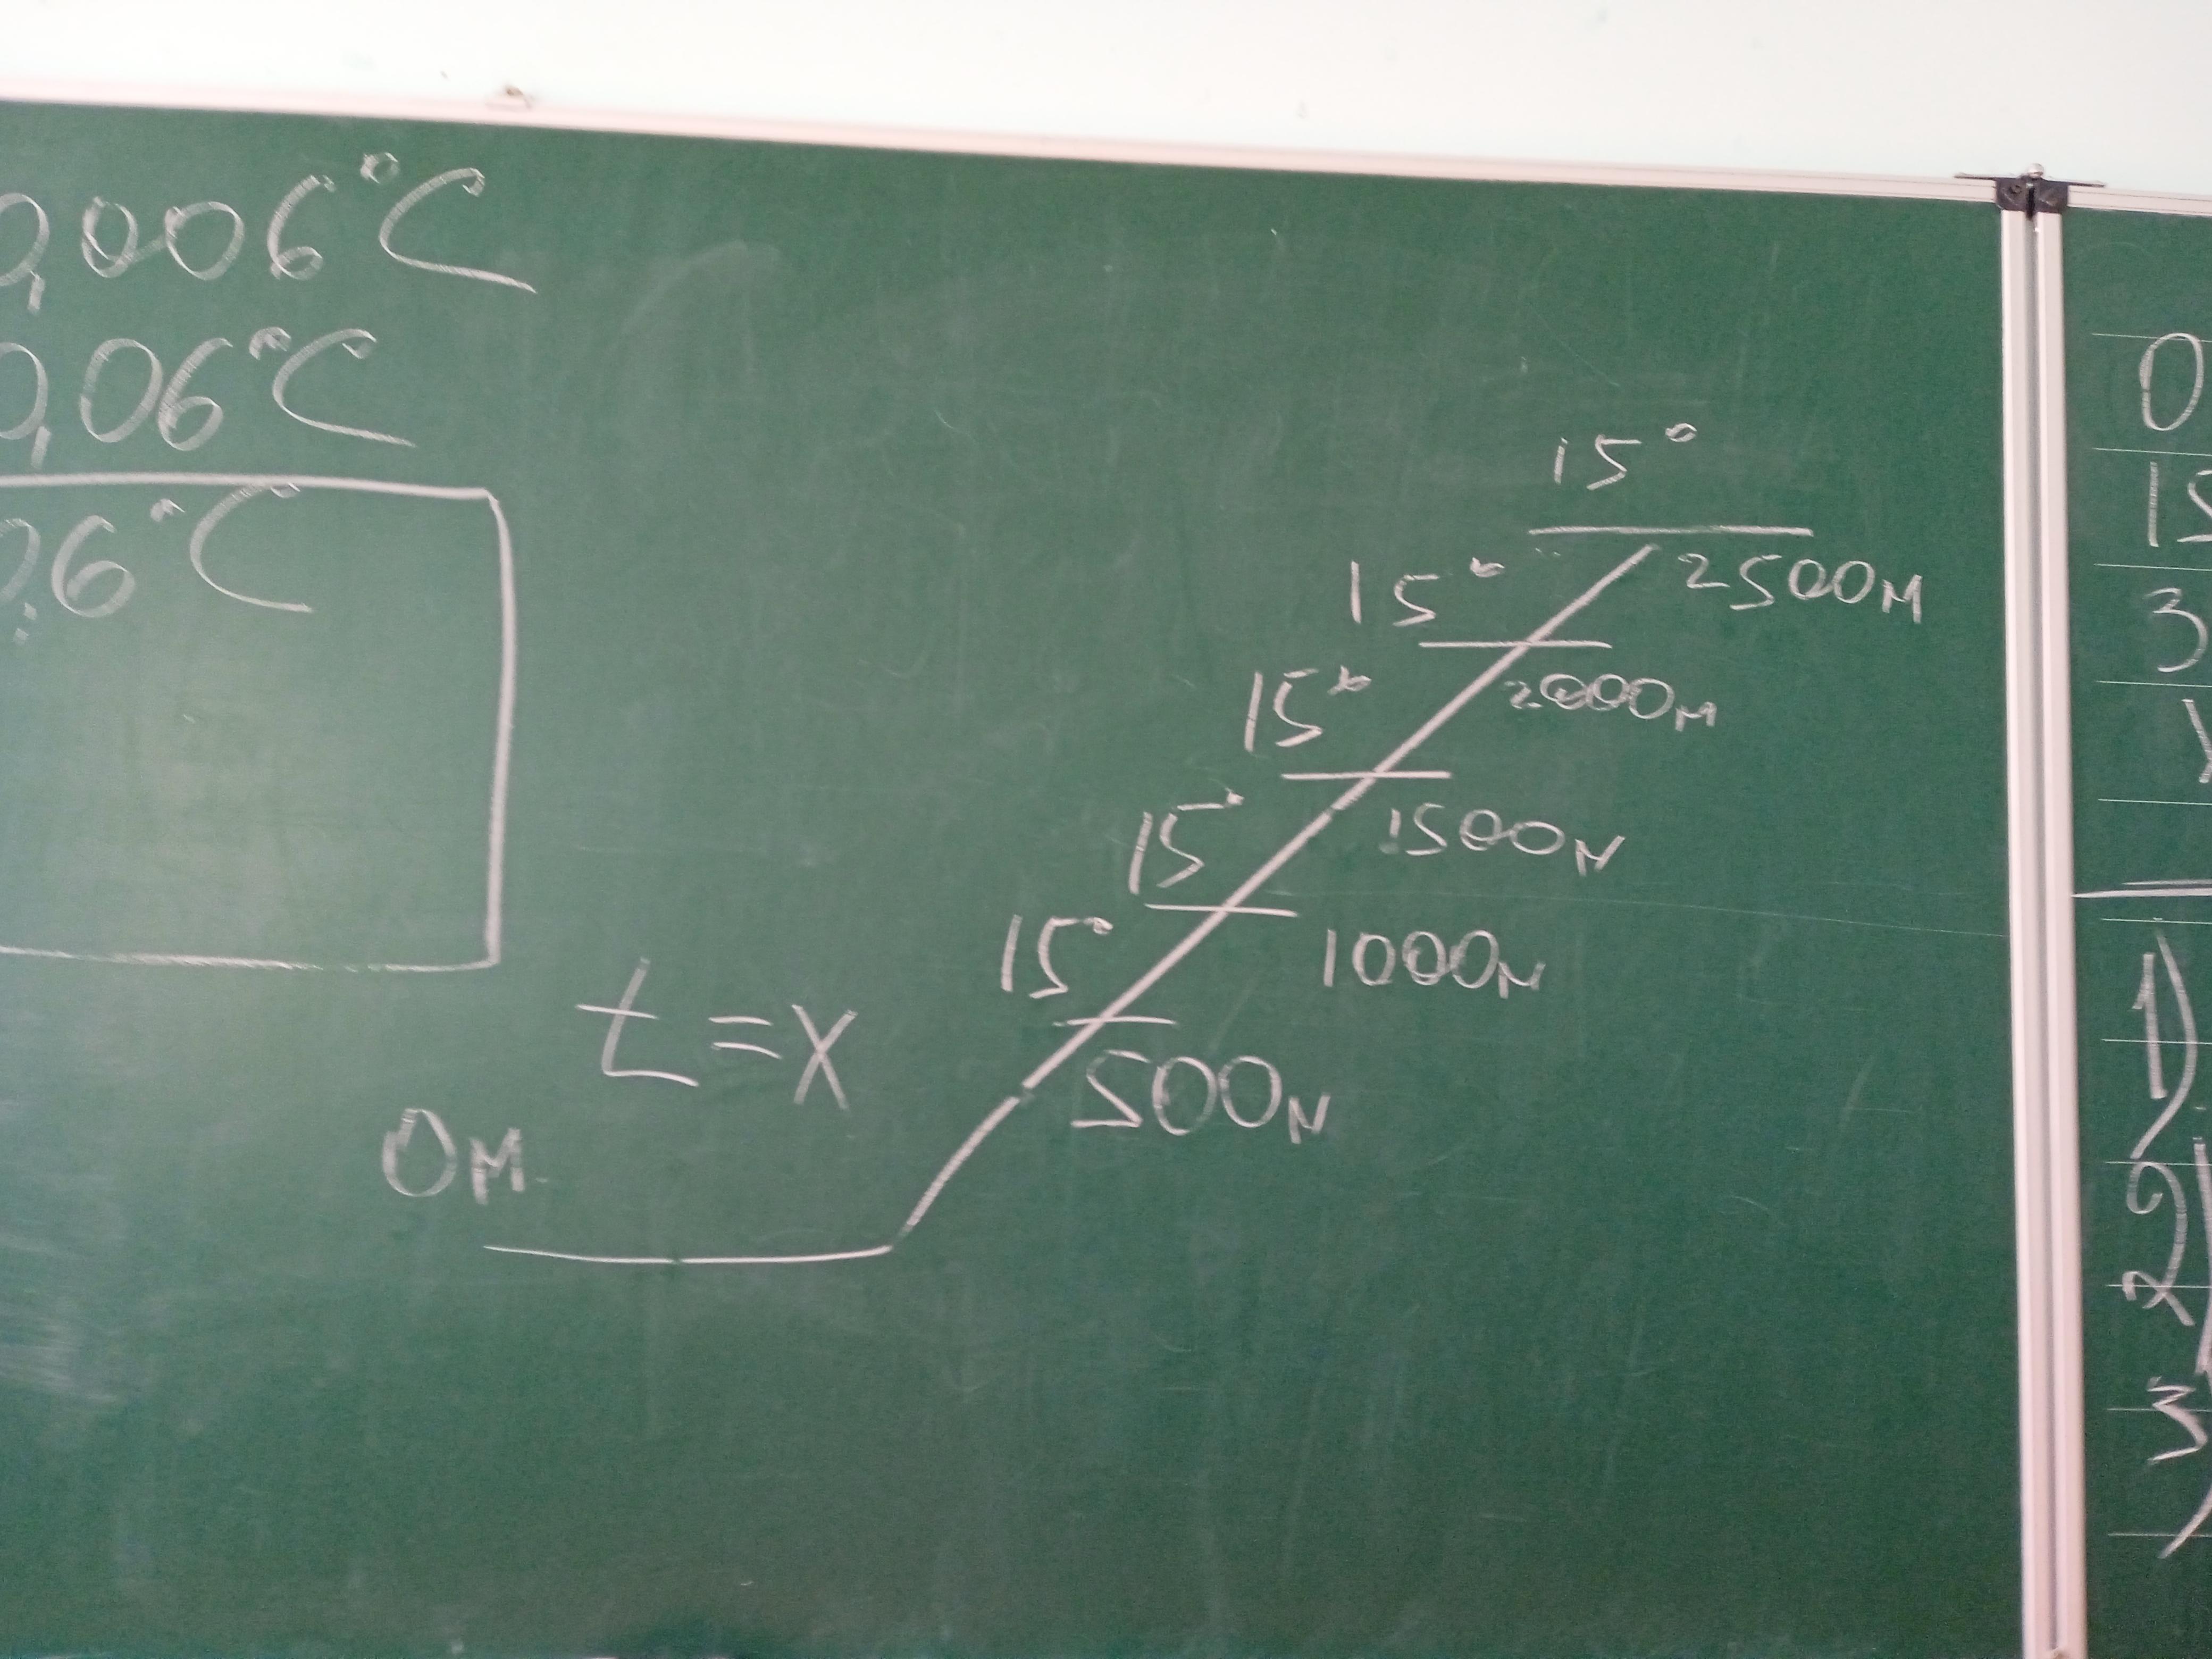 0,006°C
0,06°C
0,6°C
15°
2500м
15°
2000м
15°
1500м
15°
1000м
15°
500м
t = x
0м.
0
15
3
1)
2)
3)